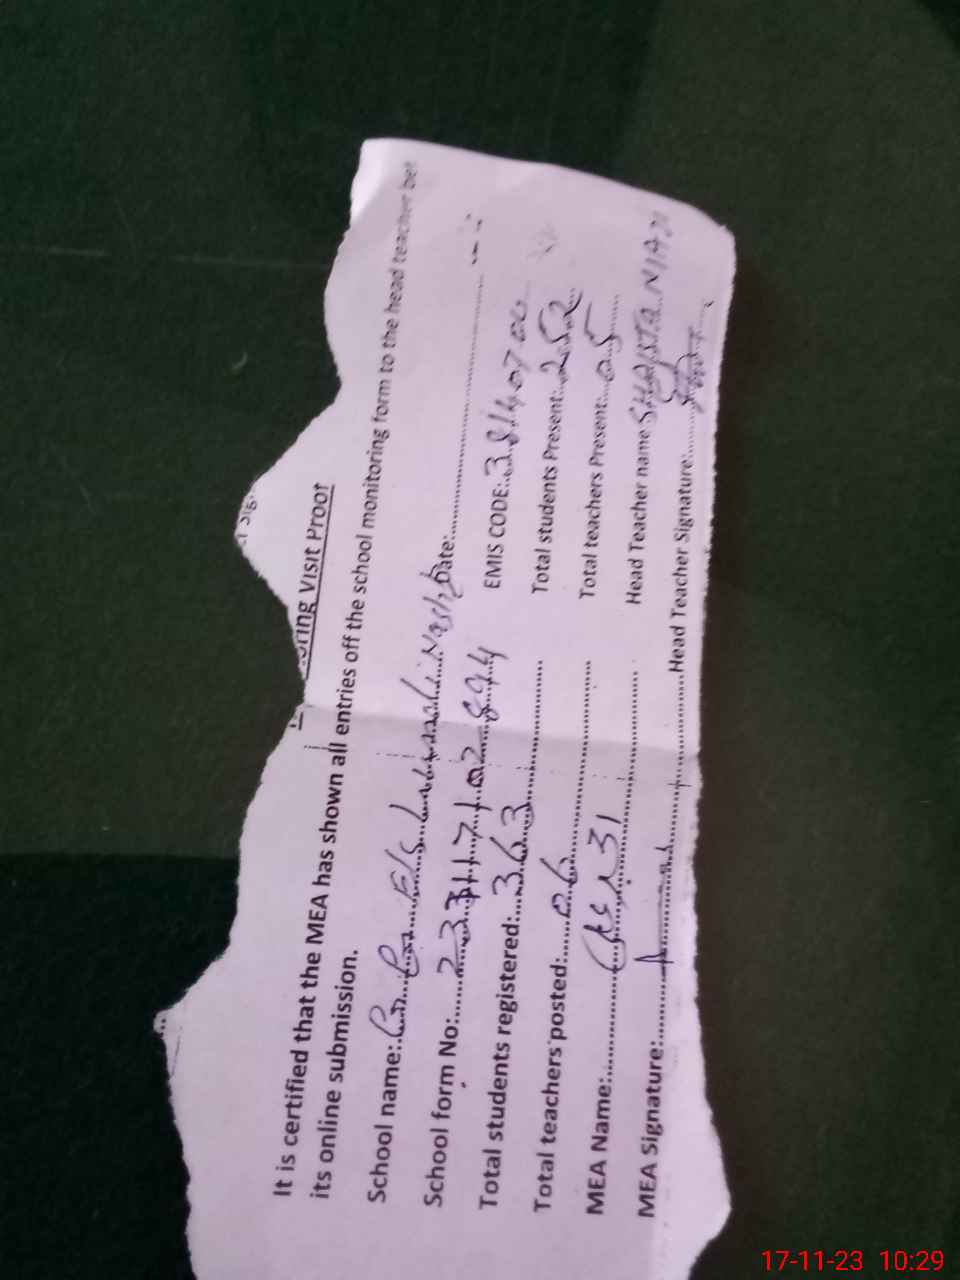 oring Visit Proof
It is certified that the MEA has shown all entries off the school monitoring form to the head teacher bef
its online submission.
School name: Date:
School form No: 233117102894 EMIS CODE:
Total students registered: 363 Total students Present: 252
Total teachers posted: 06 Total teachers Present: 05
MEA Name: 31 Head Teacher name SHAISTA NIAZ
MEA Signature: Head Teacher Signature:
17-11-23 10:29